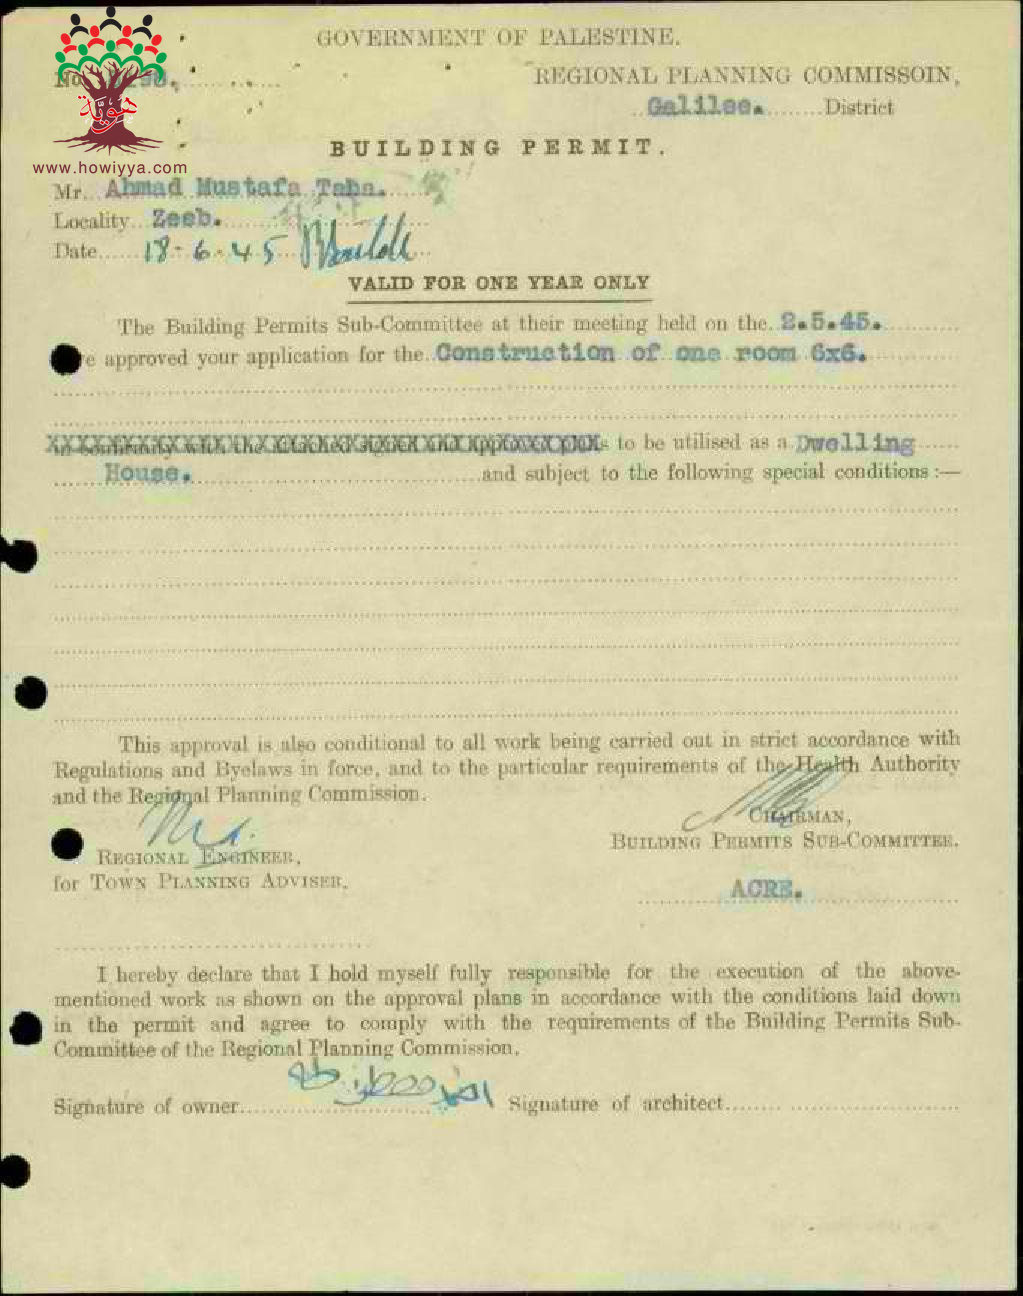 GOVERNMENT OF PALESTINE.
No.
REGIONAL PLANNING COMMISSOIN,
Galilee. District
هوية
www.howiyya.com
BUILDING PERMIT.
Mr. Ahmad Mustafa Taha.
Locality Zeeb.
Date 18-6-45
VALID FOR ONE YEAR ONLY
The Building Permits Sub-Committee at their meeting held on the 2.5.45.
e approved your application for the Construction of one room 6x6.
in conformity with the attached signed and approved plans to be utilised as a Dwelling
House. and subject to the following special conditions :—
This approval is also conditional to all work being carried out in strict accordance with
Regulations and Byelaws in force, and to the particular requirements of the Health Authority
and the Regional Planning Commission.
CHAIRMAN,
BUILDING PERMITS SUB-COMMITTEE.
REGIONAL ENGINEER,
for TOWN PLANNING ADVISER.
ACRE.
I hereby declare that I hold myself fully responsible for the execution of the above-
mentioned work as shown on the approval plans in accordance with the conditions laid down
in the permit and agree to comply with the requirements of the Building Permits Sub-
Committee of the Regional Planning Commission.
احمد مصطفى طه
Signature of owner Signature of architect